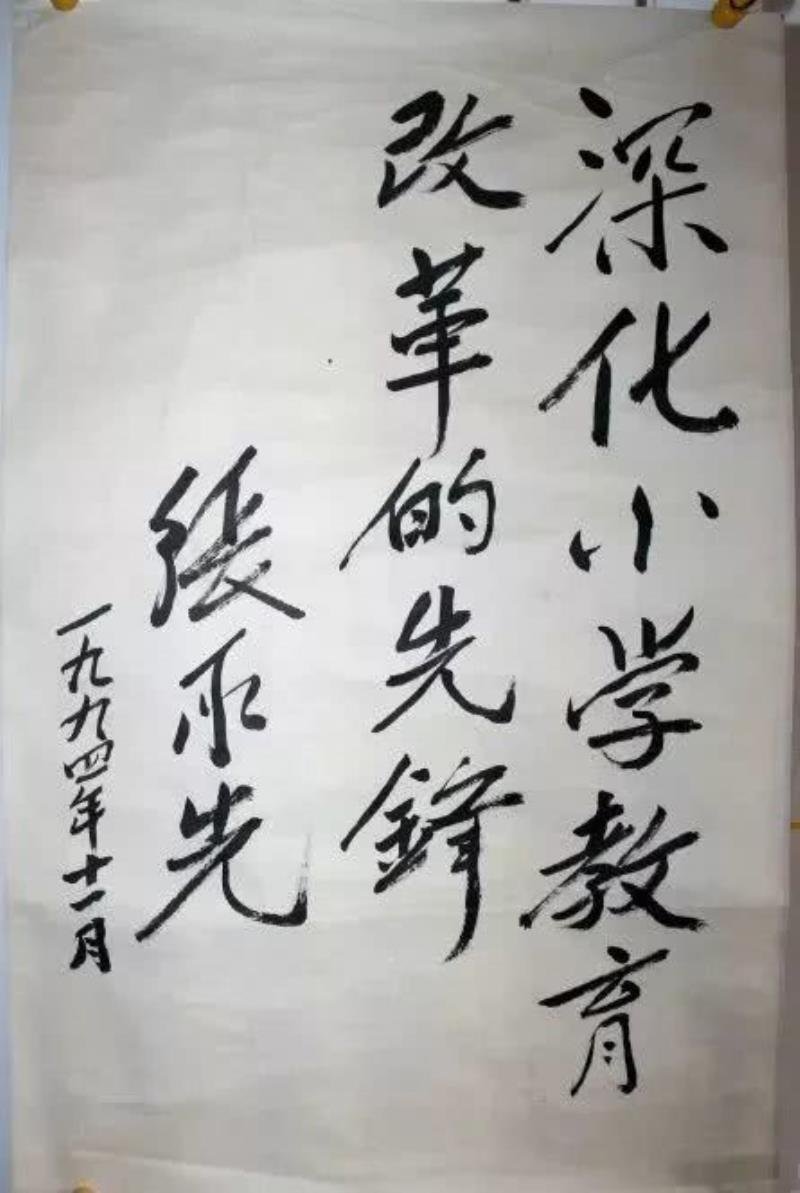 深化小学教育
改革的先鋒
張承先
一九九四年十一月